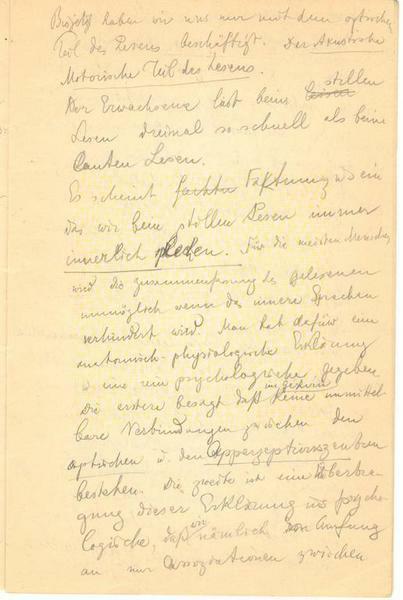 haben wir uns nur mit dem optischen
Teil des Lesens beschäftigt. Der Akustische
Motorische Teil des Lesens.
Der Erwachsene ließt beim stillen
Lesen dreimal so schnell als beim
lauten Lesen.
Es scheint zu sein
das wir beim stillen Lesen immer
innerlich. Für die meisten Menschen
wird die des gelesenen
unmöglich wenn das innere Sprechen
verhindert wird. Man hat dafür eine
anatomisch-physiologische Erklärung
u eine rein psychologische gegeben
Die erstere besagt daß im Gehirn keine unmittel
bare Verbindungen zwischen den
optischen u. den Apperzeptionszentren
bestehen. Die zweite ist eine Übertra
gung dieser Erklärung ins psycho
logische, daß wir nämlich von Anfang
an nur Assoziationen zwischen